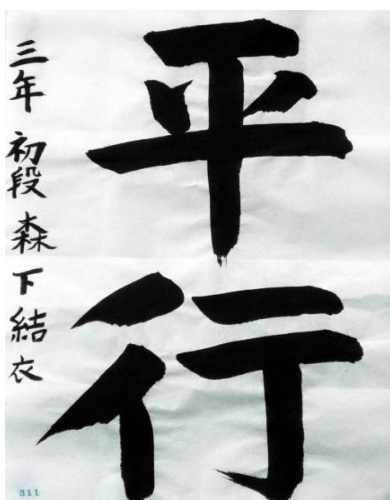 平行
三年 初段 森下結衣
311